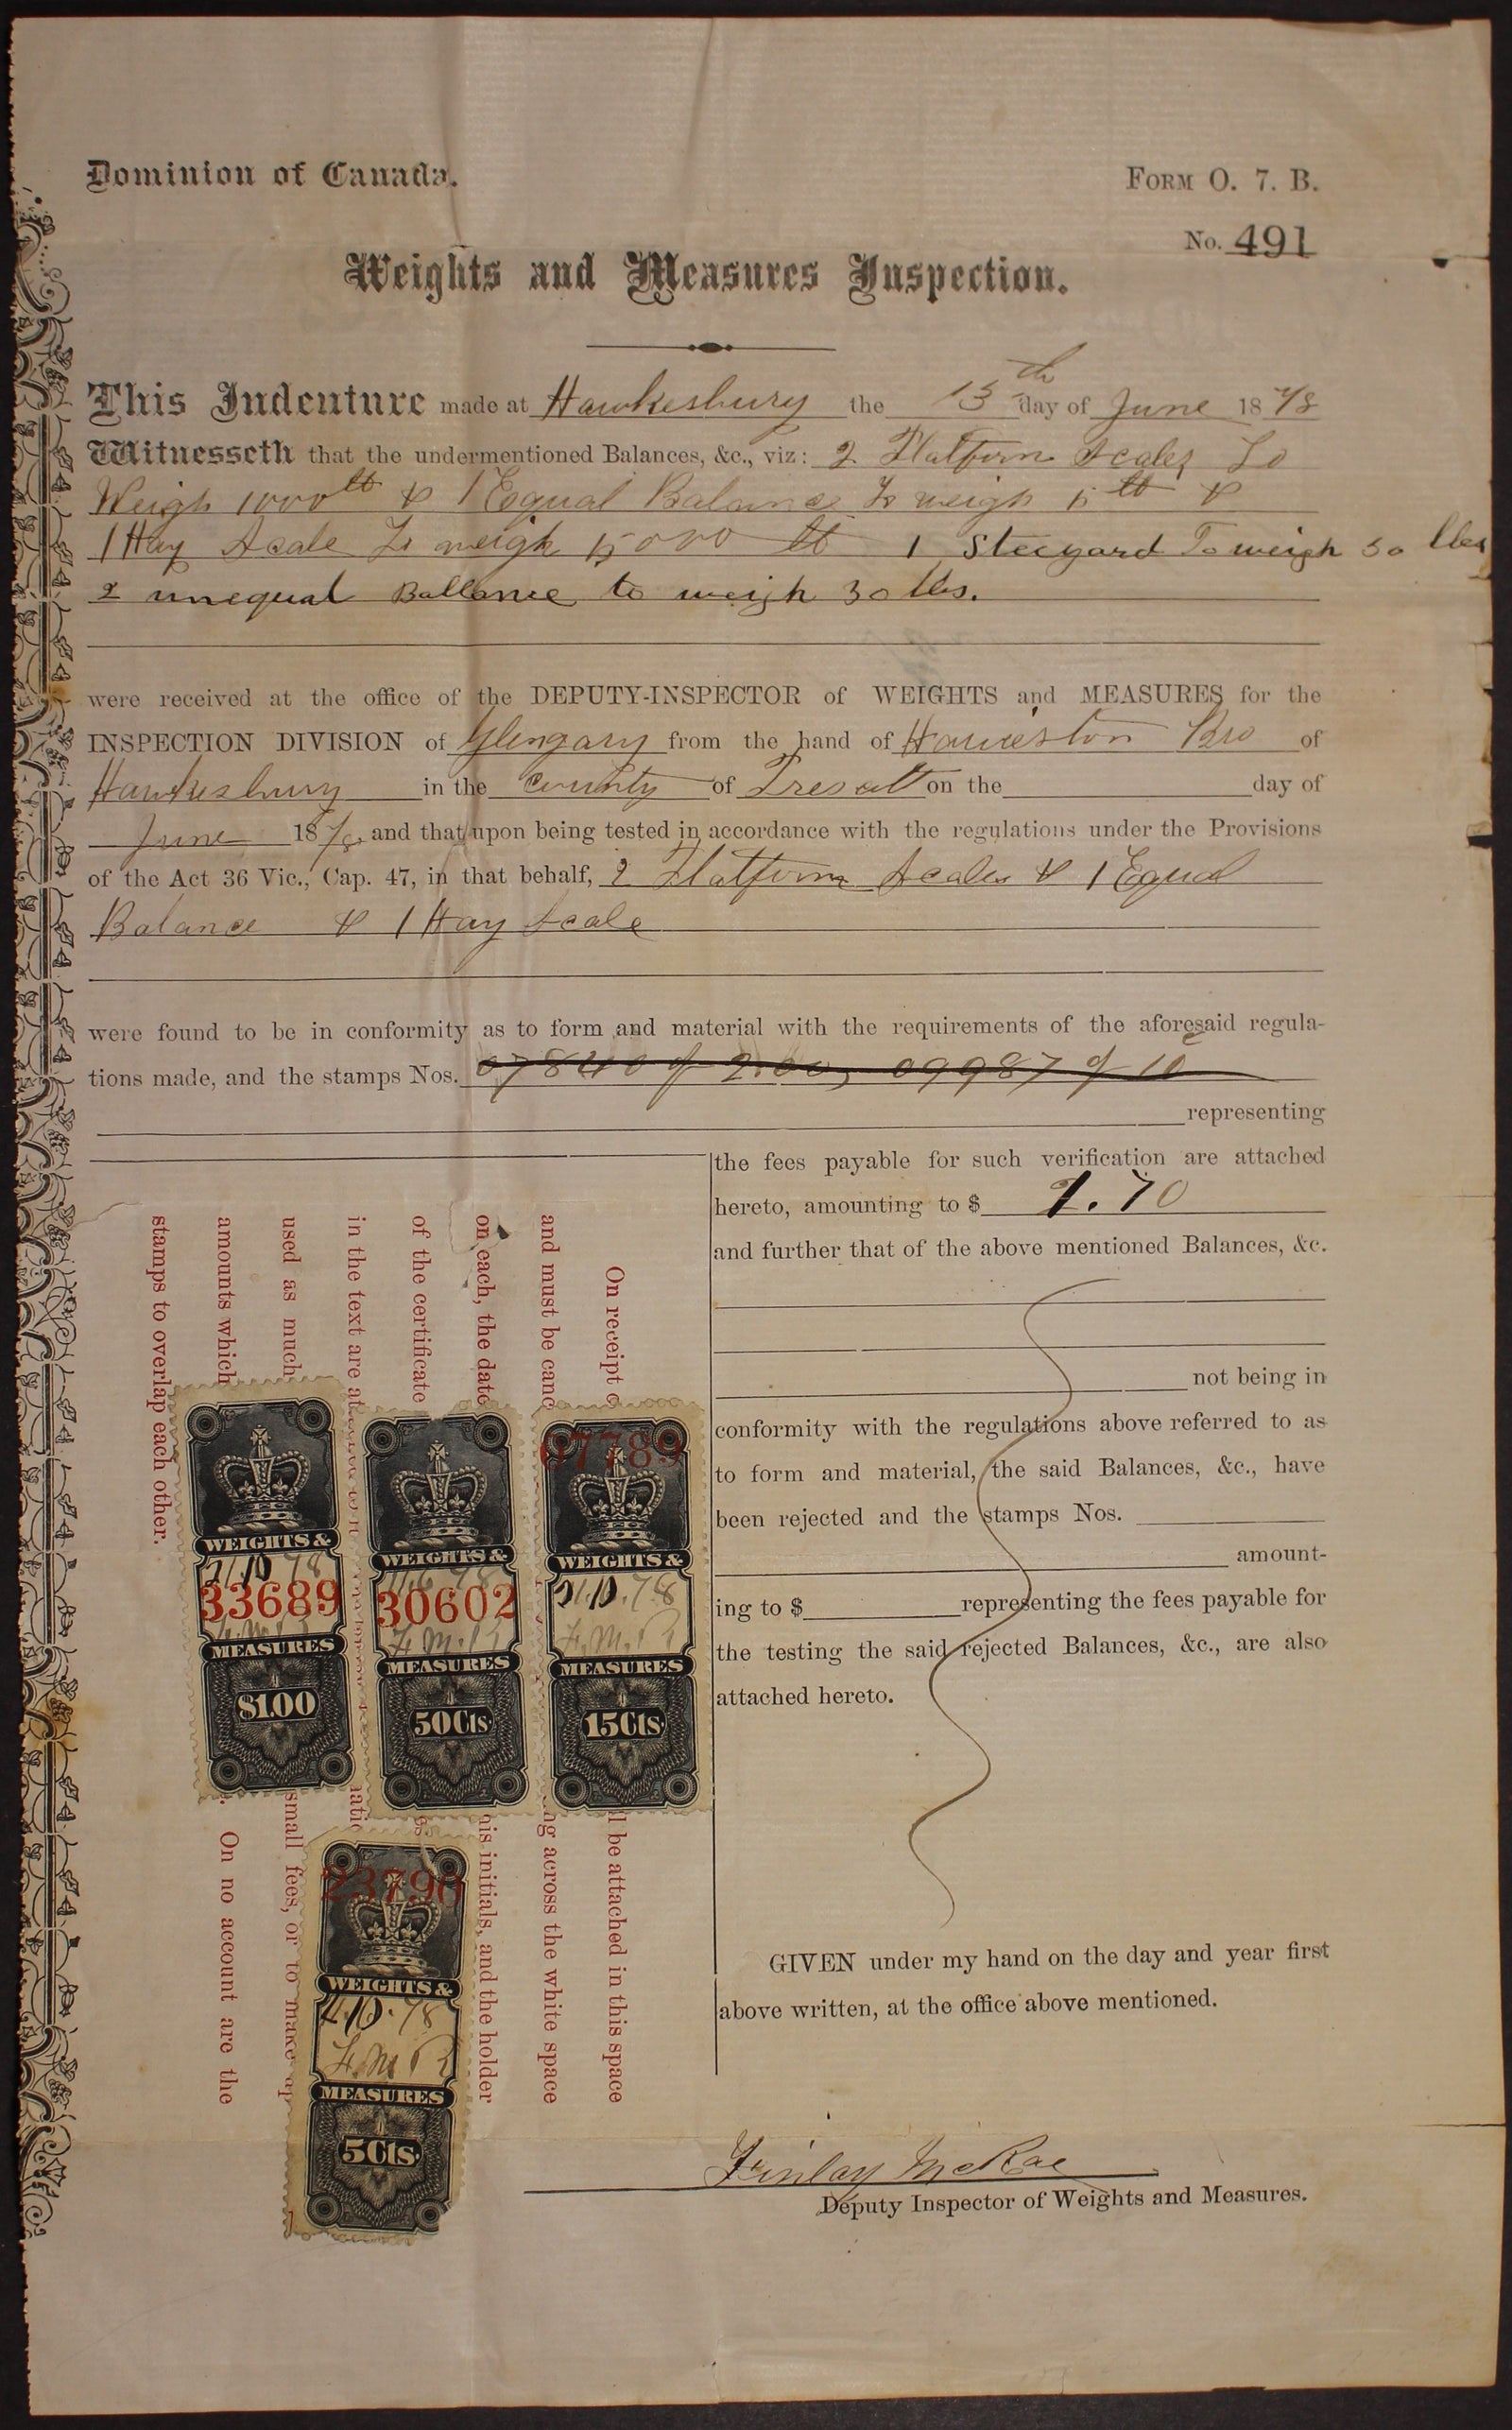 Dominion of Canada.
FORM O. 7. B.
No. 491
Weights and Measures Inspection.
This Indenture made at Hawkesbury the 13th day of June 1878
Witnesseth that the undermentioned Balances, &c., viz: 2 Platform Scales To
Weigh 1000 lb & 1 Equal Balance To weigh 15 lb &
1 Hay Scale To weigh 15000 lb 1 Steeyard To weigh 30 lbs
2 unequal Ballance to weigh 30 lbs.
were received at the office of the DEPUTY-INSPECTOR of WEIGHTS and MEASURES for the
INSPECTION DIVISION of Glengary from the hand of Bro of
Hawkesbury in the County of on the day of
June 1878, and that upon being tested in accordance with the regulations under the Provisions
of the Act 36 Vic., Cap. 47, in that behalf, 2 Platform Scales & 1 Equal
Balance & 1 Hay Scale
were found to be in conformity as to form and material with the requirements of the aforesaid regula-
tions made, and the stamps Nos. 07840 of 2.00, 09987 of 10c
representing
the fees payable for such verification are attached
hereto, amounting to $ 1.70
and further that of the above mentioned Balances, &c.
not being in
conformity with the regulations above referred to as
to form and material, the said Balances, &c., have
been rejected and the stamps Nos.
amount-
ing to $ representing the fees payable for
the testing the said rejected Balances, &c., are also
attached hereto.
GIVEN under my hand on the day and year first
above written, at the office above mentioned.
Finlay McRae
Deputy Inspector of Weights and Measures.
On receipt l be attached in this space
and must be canc ng across the white space
on each, the date his initials, and the holder
of the certificate
in the text are
used as much small fees, or to make up
amounts which On no account are the
stamps to overlap each other.
WEIGHTS &
21.10.78
33689
MEASURES
$1.00
WEIGHTS &
30602
F. McR
MEASURES
50Cts.
07789
WEIGHTS &
21.10.78
F. McR
MEASURES
15Cts.
23790
WEIGHTS &
10.78
F. McR
MEASURES
5Cts.